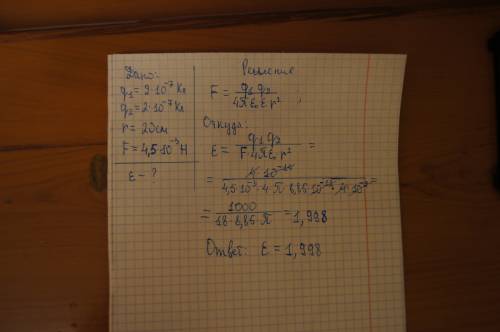 Дано:
q₁ = 2·10⁻⁷ Кл
q₂ = 2·10⁻⁷ Кл
r = 20см
F = 4,5·10⁻³ Н
ε - ?
Решение
F = q₁ q₂ / 4πε₀ε r² ,
Откуда:
ε = q₁ q₂ / F·4πε₀ r² =
= 4·10⁻¹⁴ / 4,5·10⁻³·4·π·8,85·10⁻¹²·4·10⁻² =
= 1000 / 18·8,85·π = 1,998
Ответ: ε = 1,998